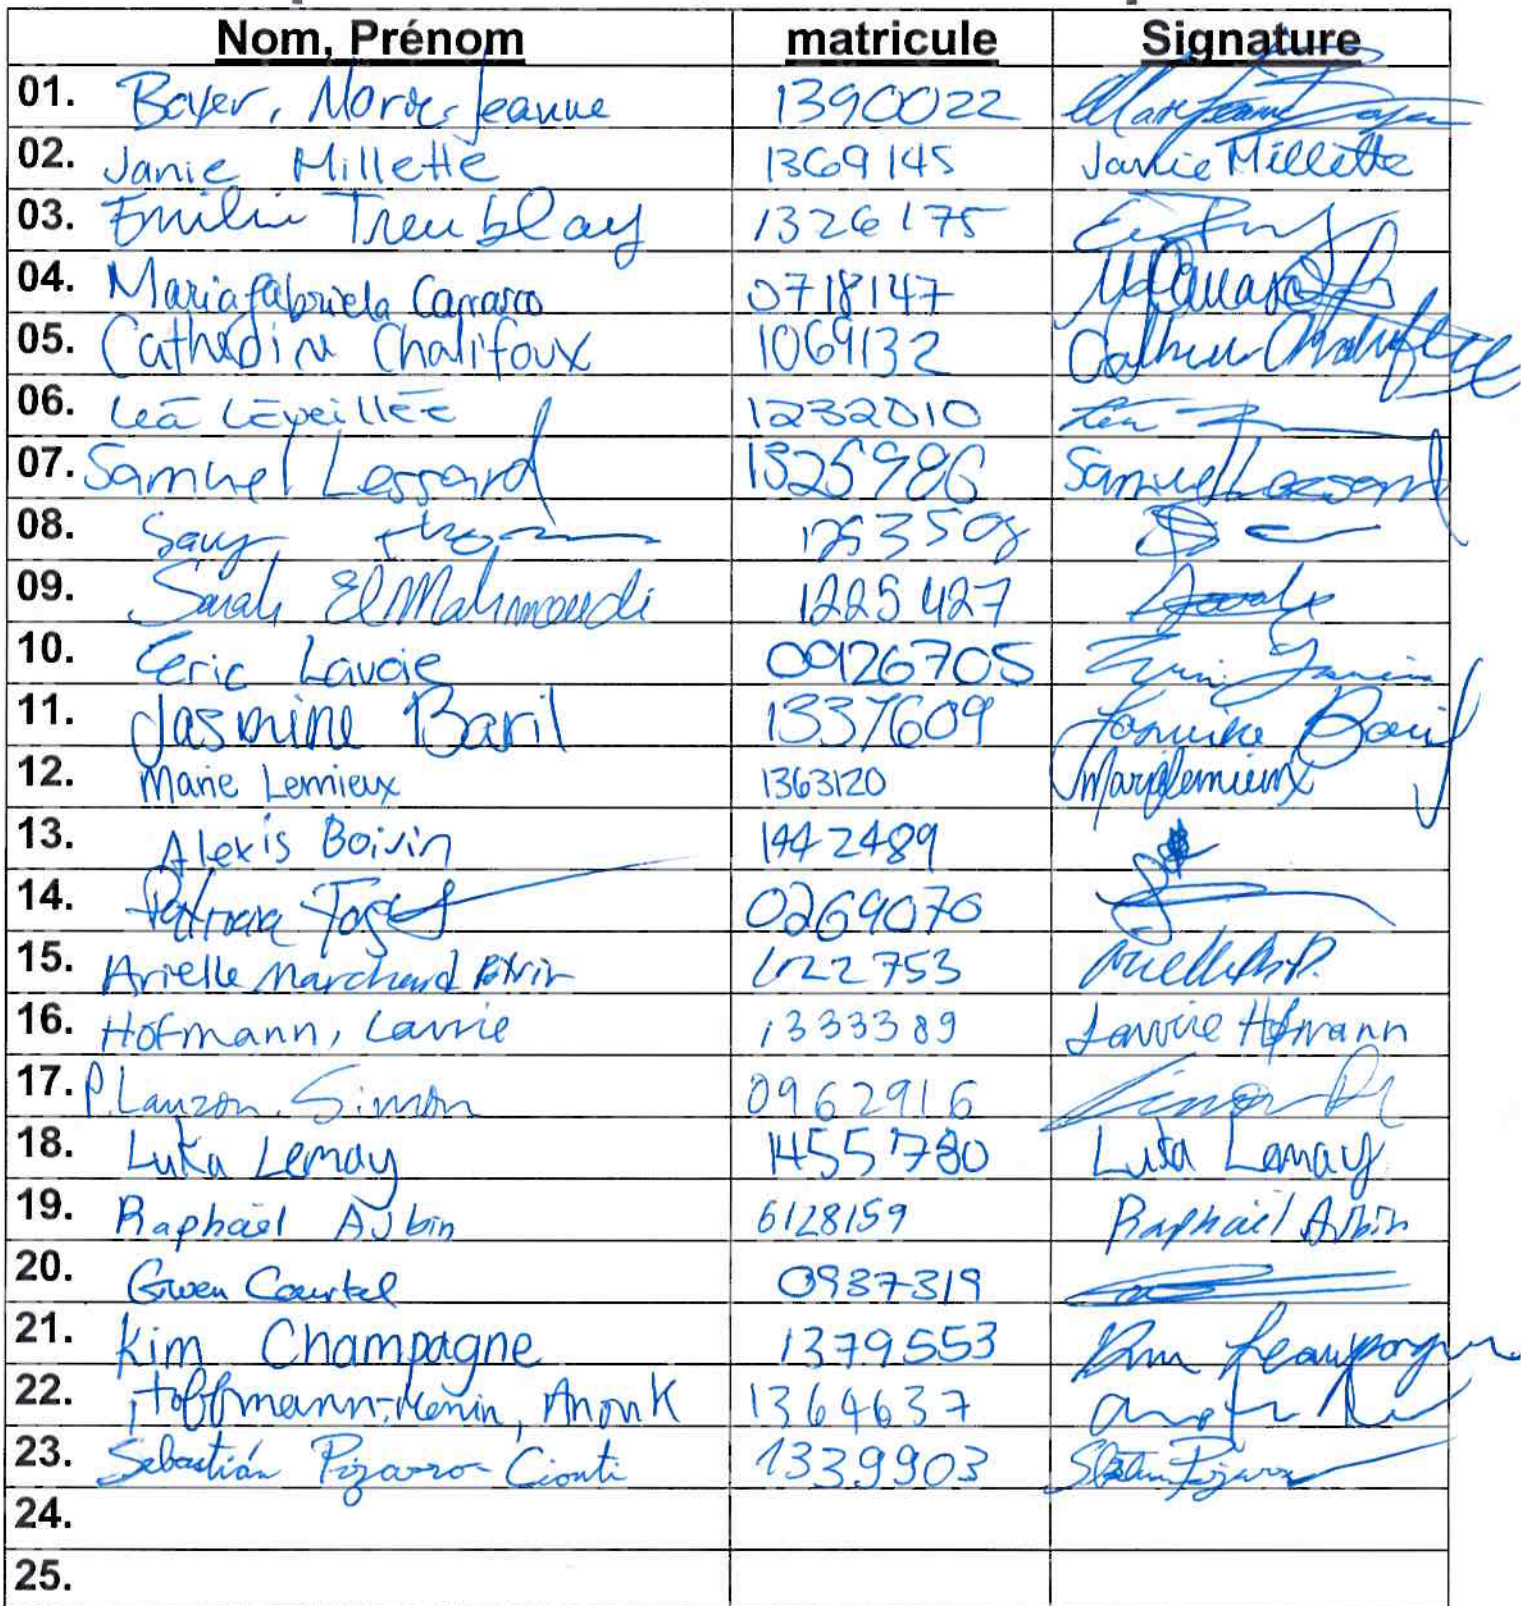 Nom, Prénom matricule Signature
01. Boyer, Marie-Jeanne 1390022
02. Janie Millette 1369145 Janie Millette
03. Emilie Tremblay 1326175
04. Mariagabriela Carrasco 0718147
05. Catherine Chalifoux 1069132
06. Léa Léveillée 1232010 Léa
07. Samuel Lessard 1325986 Samuel Lessard
08.
09. Sarah El Mahmoudi 1225427
10. Eric Lavoie 0926705
11. Jasmine Baril 1337609 Jasmine Baril
12. Marie Lemieux 1363120 Marie Lemieux
13. Alexis Boivin 1442489
14. 0269070
15. Arielle Marchand 1222753
16. Hofmann, Laurie 1333389 Laurie Hofmann
17. P.Lauzon, Simon 0962916
18. Luka Lemay 1455780 Luka Lemay
19. Raphaël Aubin 6128159 Raphaël Aubin
20. Gwen Courtel 0937319
21. Kim Champagne 1379553 Kim Champagne
22. Hoffmann-Ménin, Anouk 1364637
23. Sebastián Pizarro-Cionti 1339903
24.
25.